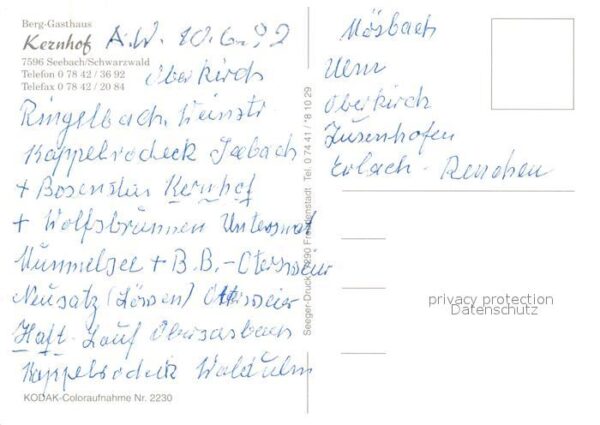 Berg-Gasthaus
Kernhof A.W. 10.6.92
7596 Seebach/Schwarzwald
Telefon 0 78 42 / 36 92
Telefax 0 78 42 / 20 84
Oberkirch
Ringelbach
Kappelrodeck Seebach
+ Bosenstein Kernhof
+ Wolfsbrunnen Unterwat
Mummelsee + B.B.-Ottersweier
Neusatz (Löwen) Ottersweier
Haft. Lauf Obersasbach
Kappelrodeck Waldulm
KODAK-Coloraufnahme Nr. 2230
Seeger-Druck, 7290 Freudenstadt Tel. 0 74 41 / *8 10 29
Mösbach
Ulm
Oberkirch
Zusenhofen
Erlach - Renchen
privacy protection
Datenschutz